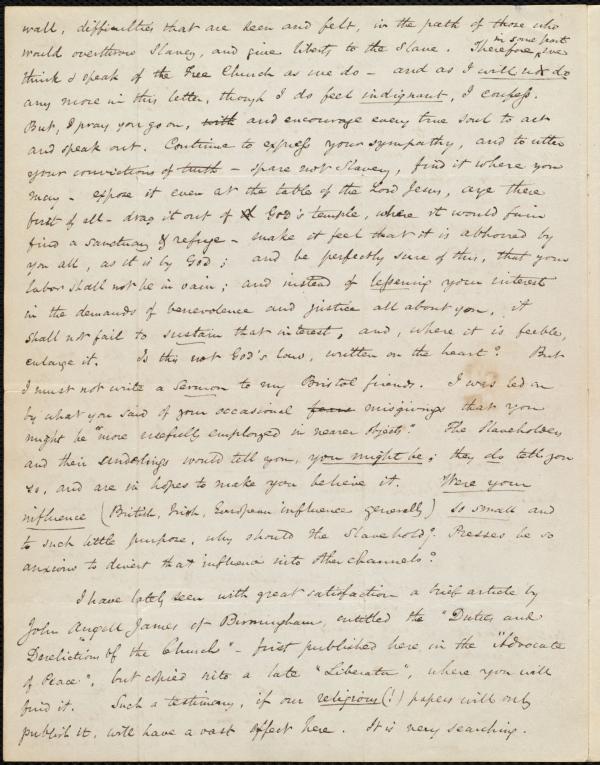 wall, difficulties that are seen and felt, in the path of those who
would overthrow Slavery, and give liberty to the Slave. Therefore, in some part, we
think & speak of the Free Church as we do – and as I will not do
any more in this letter, though I do feel indignant, I confess.
But, I pray you go on, with and encourage every true soul to act
and speak out. Continue to express your sympathy, and to utter
your convictions of truth – spare not Slavery, find it where you
may – expose it even at the table of the Lord Jesus, aye there
first of all – drag it out of God's temple, where it would fain
find a sanctuary & refuge – make it feel that it is abhorred by
you all, as it is by God; and be perfectly sure of this, that your
labor shall not be in vain; and instead of lessening your interest
in the demands of benevolence and justice all about you, it
shall not fail to sustain that interest, and, where it is feeble,
enlarge it. Is this not God's law, written on the heart? But
I must not write a Sermon to my Bristol friends. I was led on
by what you said of your occasional fears misgivings that you
might be "more usefully employed in nearer objects." The Slaveholders
and their underlings would tell you, you might be; they do tell you
so, and are in hopes to make you believe it. Were your
influence (British, Irish, European influence generally) so small and
to such little purpose, why should the Slavehold.g Presses be so
anxious to divert that influence into other channels?
I have lately seen with great satisfaction a brief article by
John Angell James of Birmingham, entitled the "Duties and
Dereliction of the Church" – first published here in the "Advocate
of Peace", but copied into a late "Liberator", where you will
find it. Such a testimony, if our religious (!) papers will only
publish it, will have a vast effect here. It is very searching.